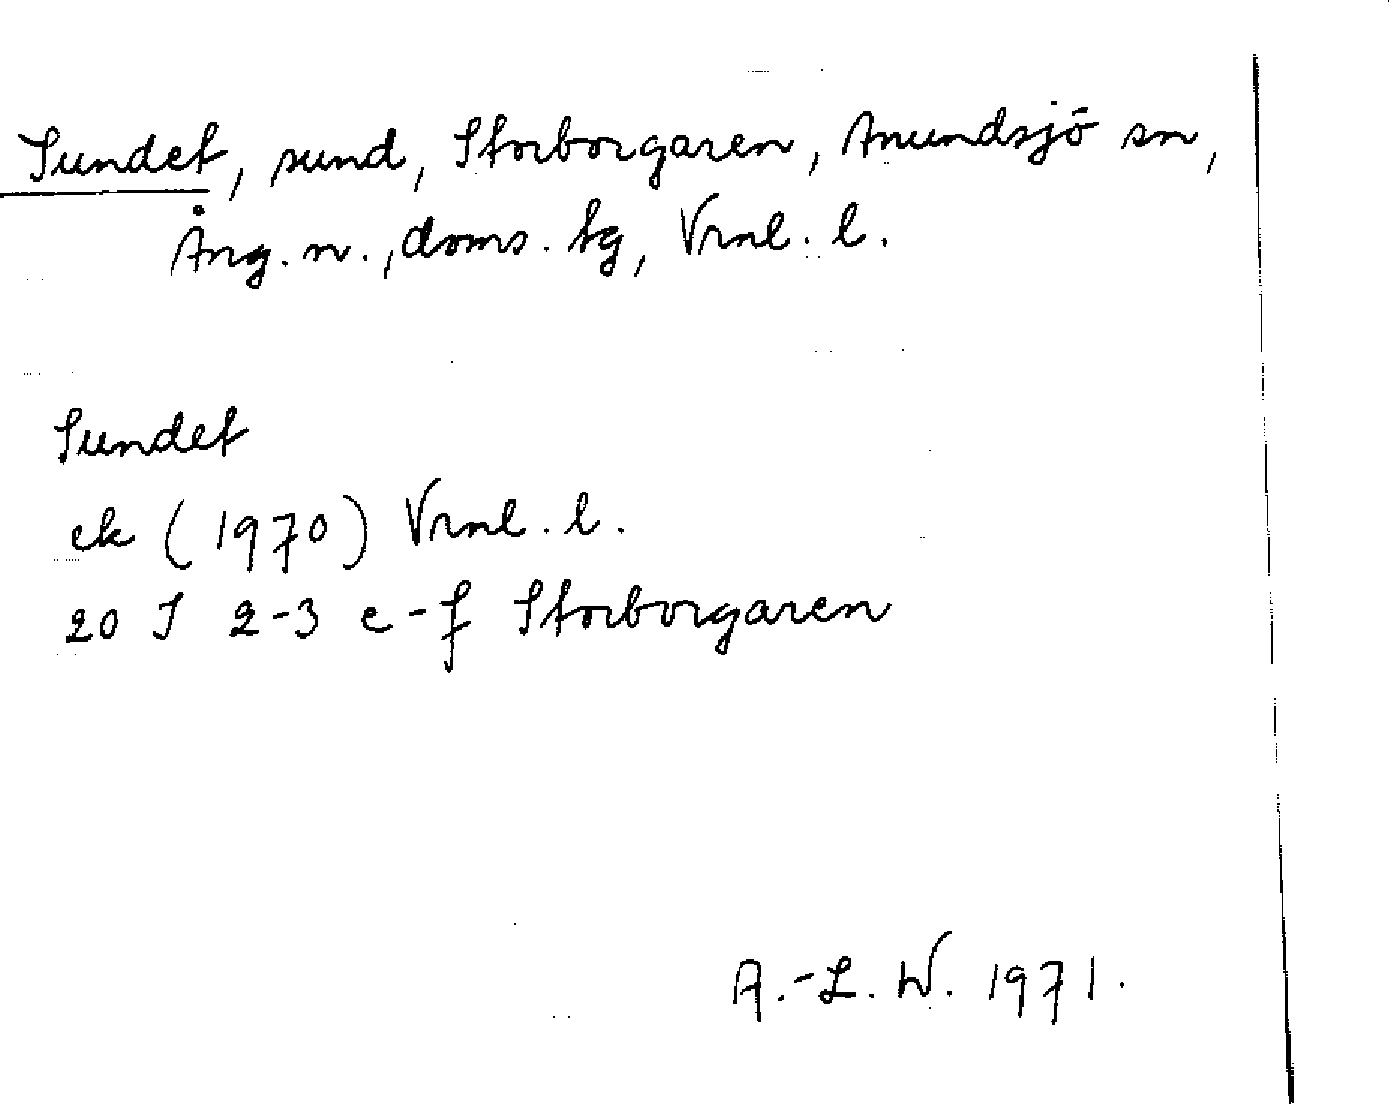 Sundet, sund, Storborgaren, Anundsjö sn,
Ång. n., doms. tg, Vrml. l.
Sundet
ek (1970) Vrml. l.
20 I 2-3 e-f Storborgaren
A.-L. W. 1971.